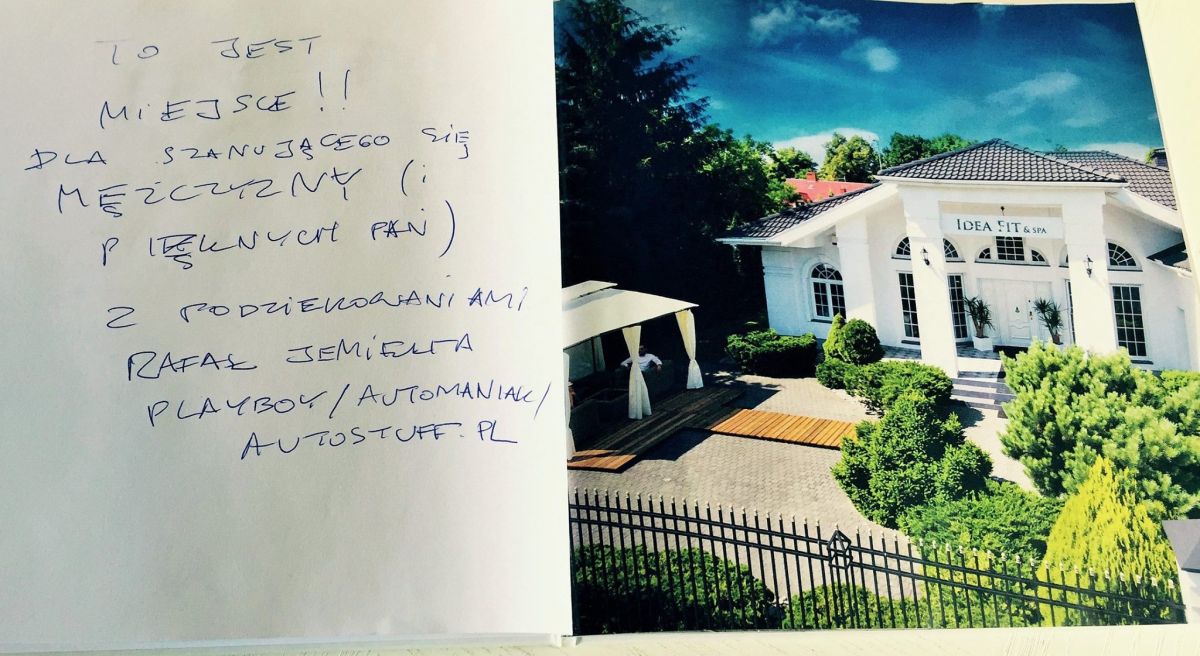 TO JEST
MIEJSCE!!
DLA SZANUJĄCEGO SIĘ
MĘŻCZYZNY (i
PIĘKNYCH PAŃ)
Z PODZIĘKOWANIAMI
RAFAŁ JEMIELITA
PLAYBOY/AUTOMANIAK/
AUTOSTUFF.PL
IDEA FIT & SPA